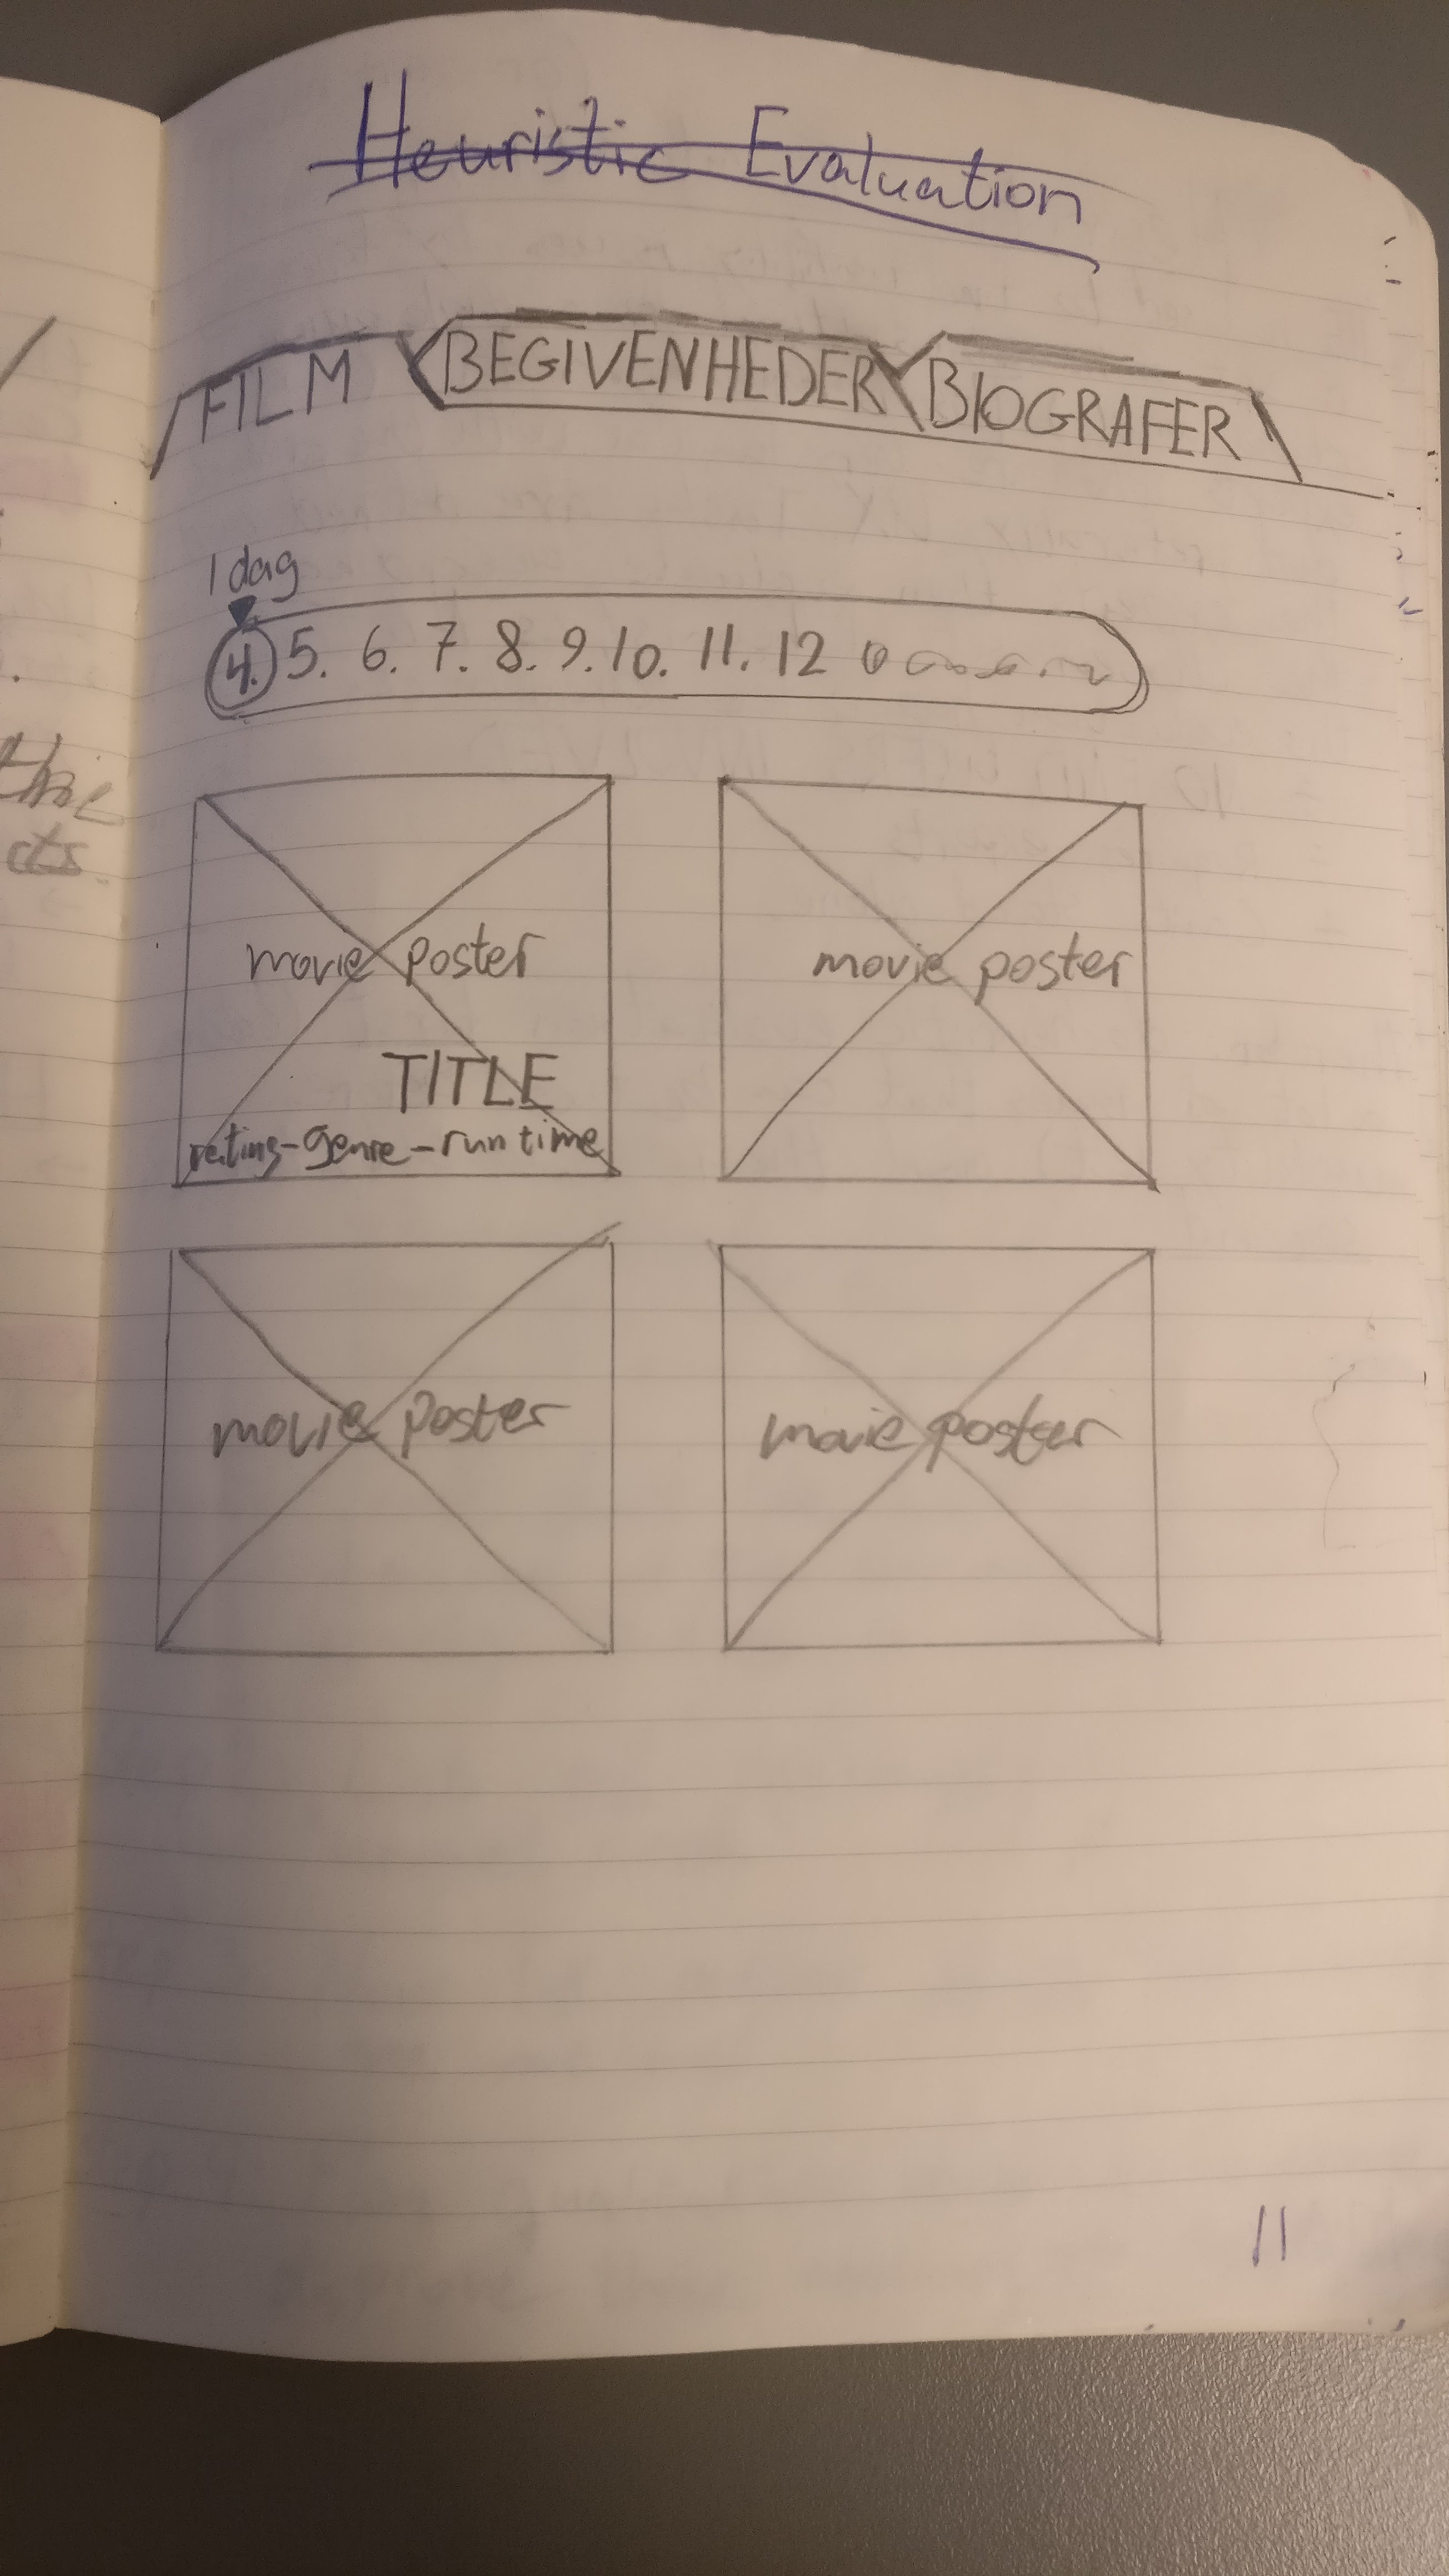 Heuristic Evaluation
FILM BEGIVENHEDER BIOGRAFER
1 dag
4. 5. 6. 7. 8. 9. 10. 11. 12
movie poster movie poster
TITLE
rating-genre-run time
movie poster movie poster
cts.
11